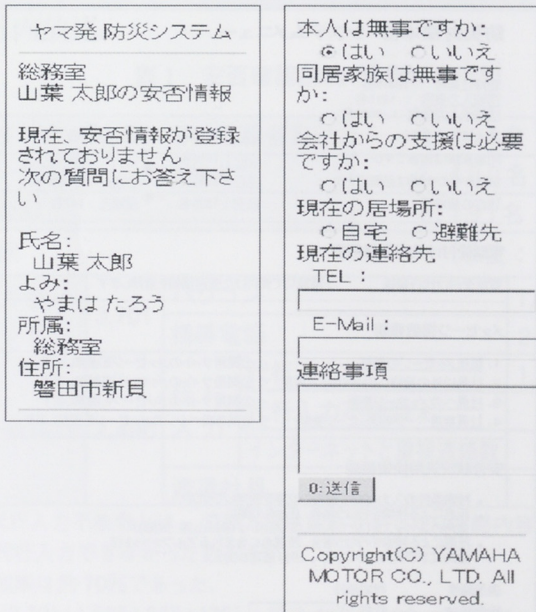 ヤマ発 防災システム
総務室
山葉 太郎の安否情報
現在、安否情報が登録
されておりません
次の質問にお答え下さ
い
氏名:
山葉 太郎
よみ:
やまは たろう
所属:
総務室
住所:
磐田市新貝
本人は無事ですか:
はい いいえ
同居家族は無事です
か:
はい いいえ
会社からの支援は必要
ですか:
はい いいえ
現在の居場所:
自宅 避難先
現在の連絡先
TEL:
E-Mail:
連絡事項
0:送信
Copyright(C) YAMAHA
MOTOR CO., LTD. All
rights reserved.